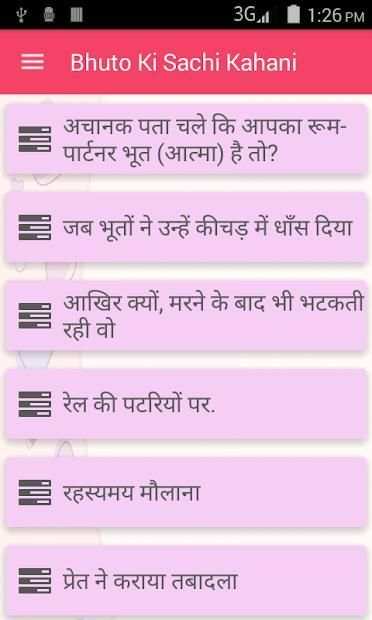 3G 1:26 PM
Bhuto Ki Sachi Kahani
अचानक पता चले कि आपका रूम-
पार्टनर भूत (आत्मा) है तो?
जब भूतों ने उन्हें कीचड़ में धाँस दिया
आखिर क्यों, मरने के बाद भी भटकती
रही वो
रेल की पटरियों पर.
रहस्यमय मौलाना
प्रेत ने कराया तबादला